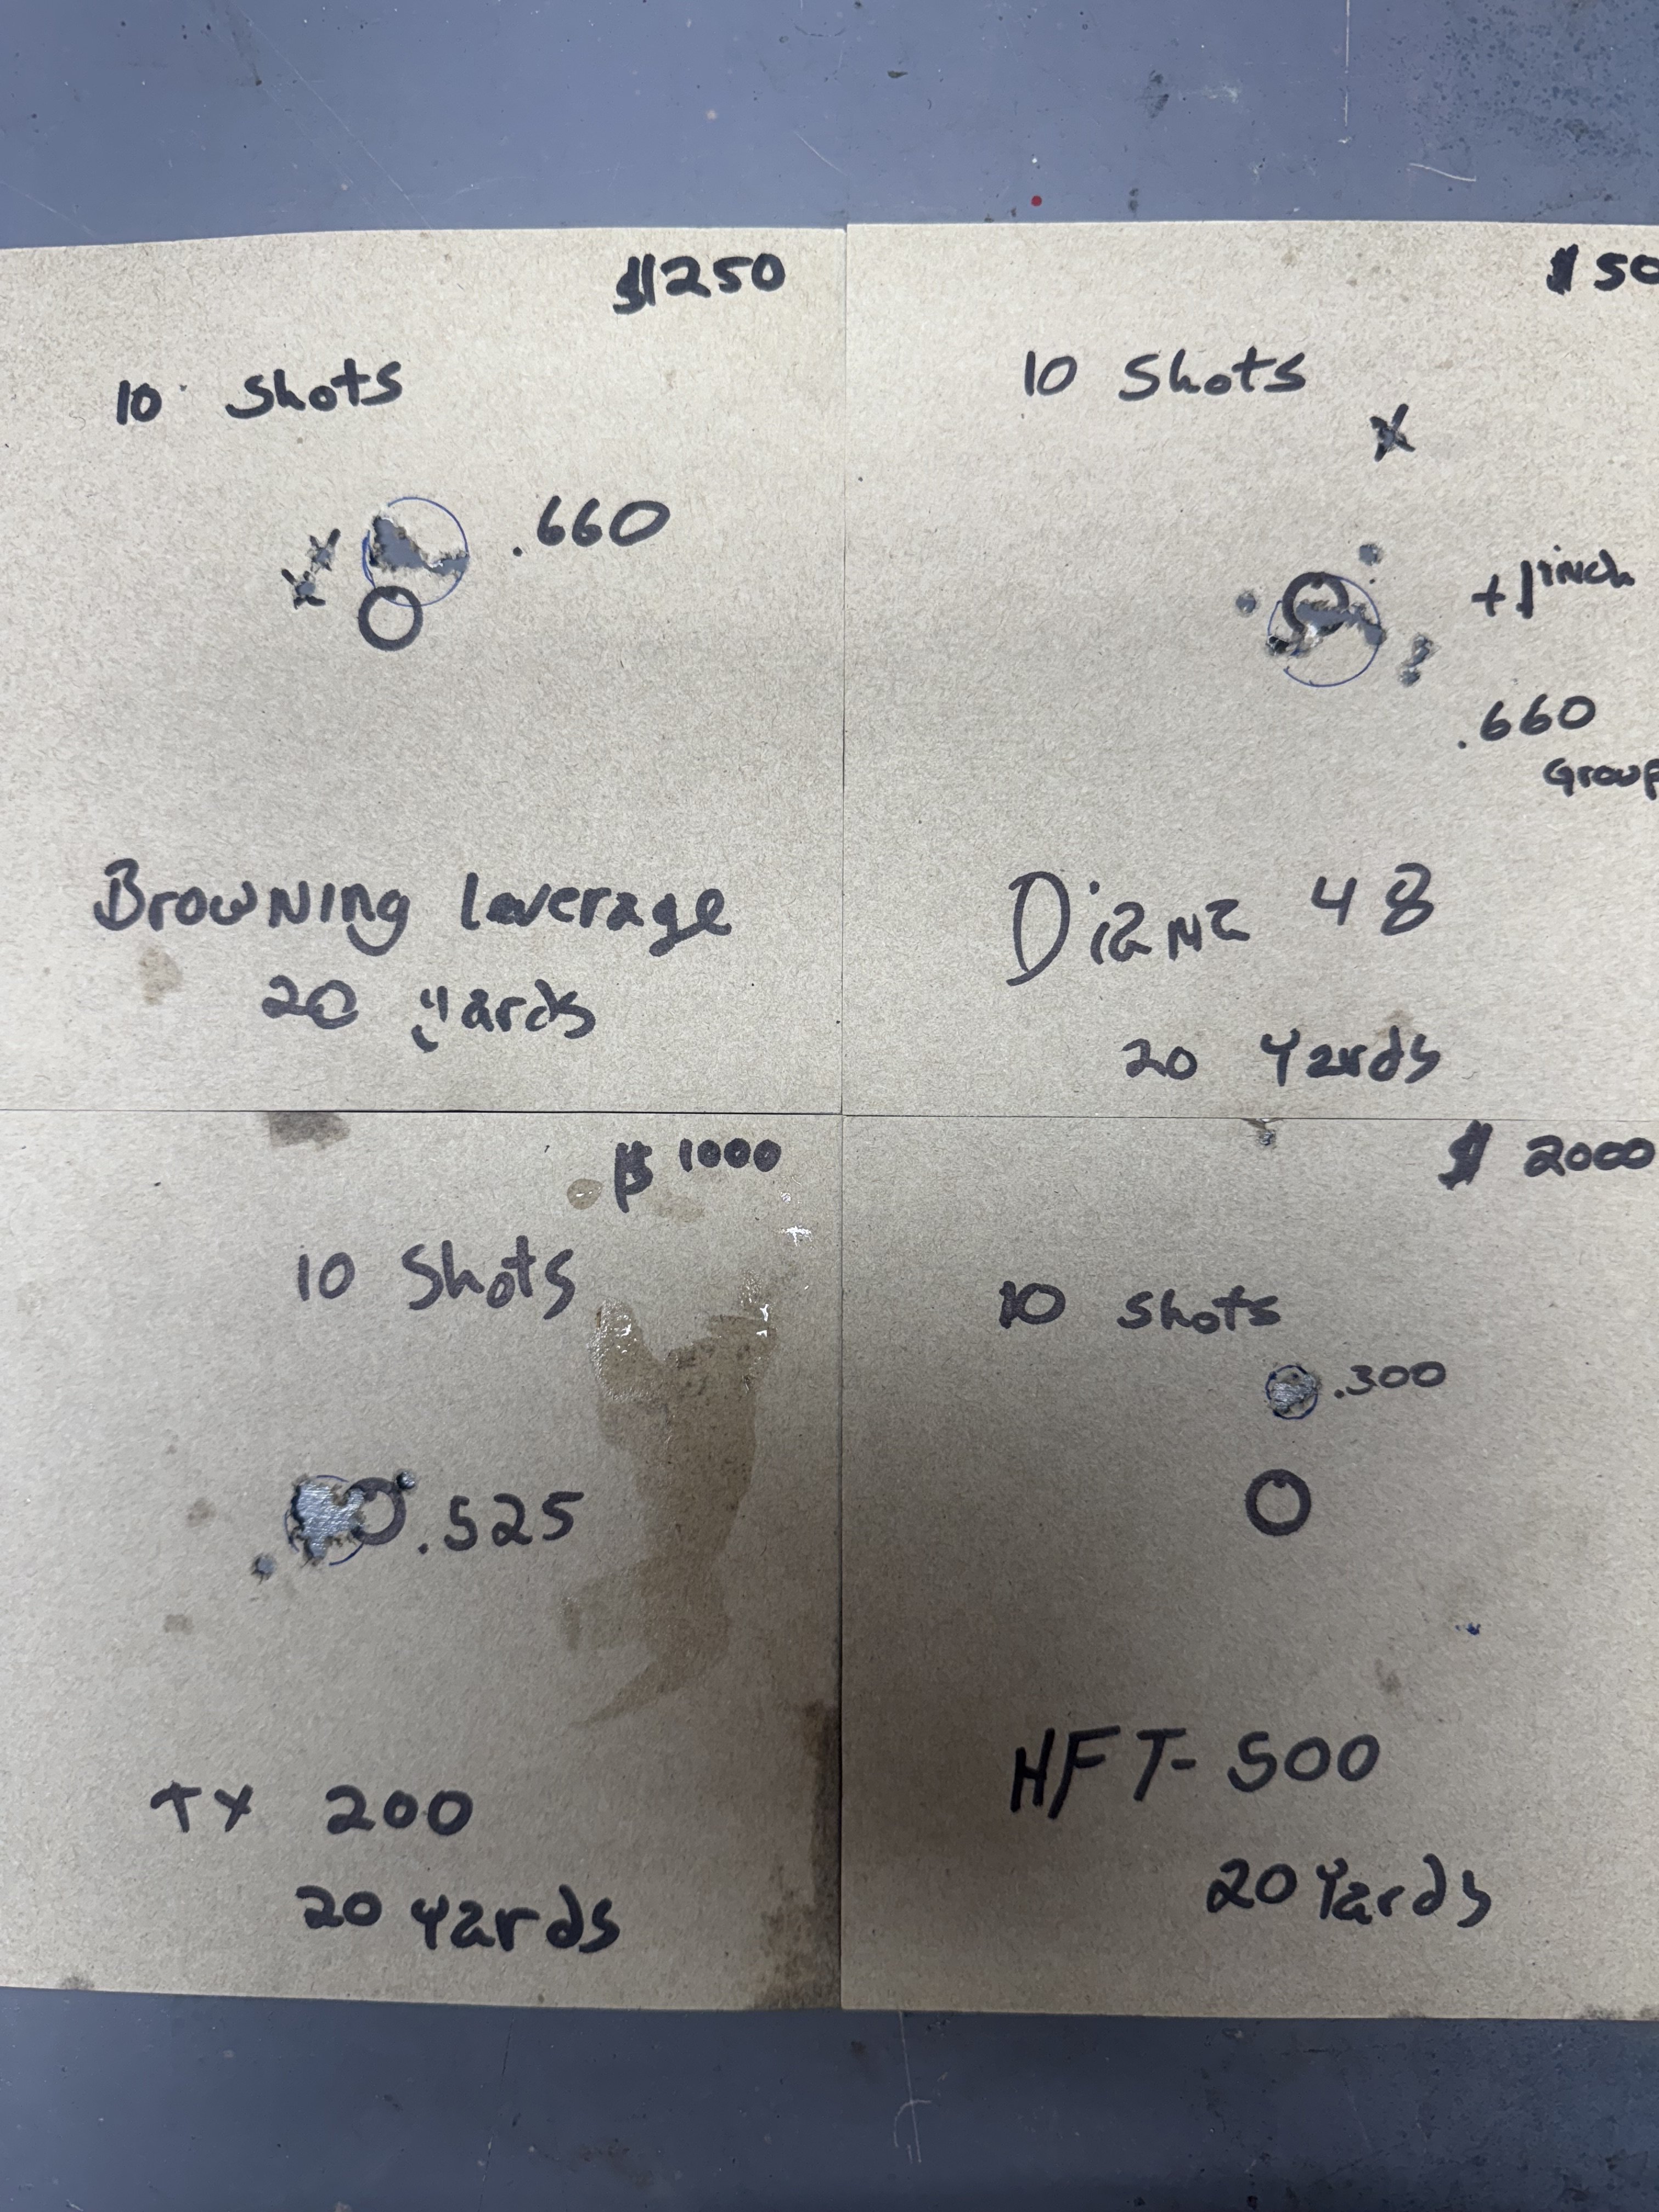 $1250
10 Shots
.660
Browning leverage
20 yards
$ 50
10 Shots
X
+1 inch
.660
Group
Diana 48
20 Yards
$ 1000
10 Shots
.525
TX 200
20 Yards
$ 2000
10 Shots
.300
HFT-500
20 Yards